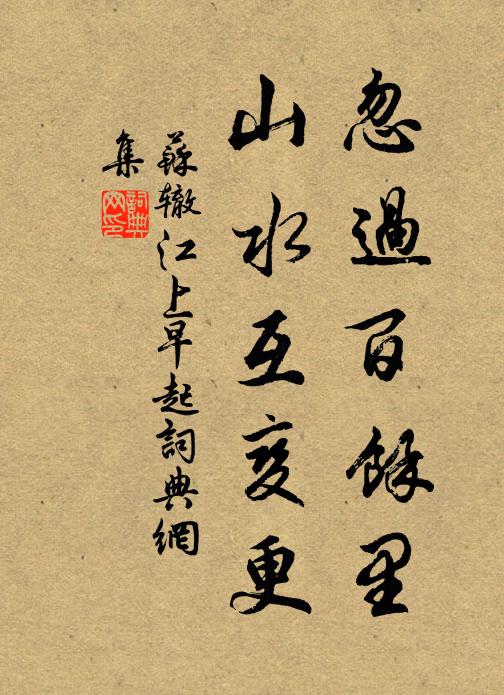 忽過百餘里
山水互变更
蘇辙江上早起詞典網
集
詞典
网印